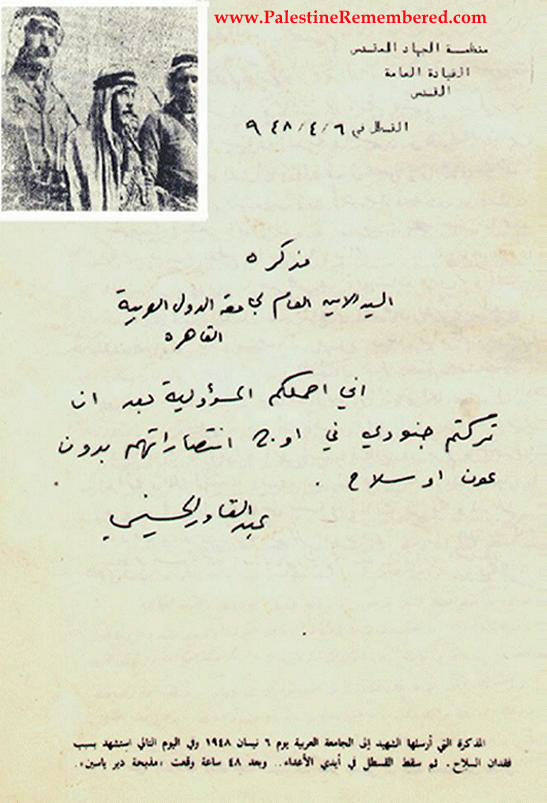 www.PalestineRemembered.com
منظمة الجهاد المقدس
القيادة العامة
القدس
القسطل في ٦/٤/٩٤٨
مذكره
السيد الامين العام لجامعة الدول العربية
القاهره
اني احملكم المسؤولية بعد ان
تركتم جنودي في اوج انتصاراتهم بدون
عون او سلاح .
عبد القادر الحسيني
المذكرة التي أرسلها الشهيد إلى الجامعة العربية يوم ٦ نيسان ١٩٤٨ وفي اليوم التالي استشهد بسبب
فقدان السلاح. ثم سقط القسطل في أيدي الأعداء.. وبعد ٤٨ ساعة وقعت «مذبحة دير ياسين».